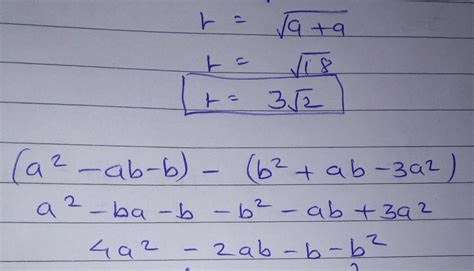 r = √9+9
r = √18
r = 3√2
(a² -ab-b) - (b² + ab -3a²)
a² -ba -b -b² -ab +3a²
4a² -2ab -b -b²